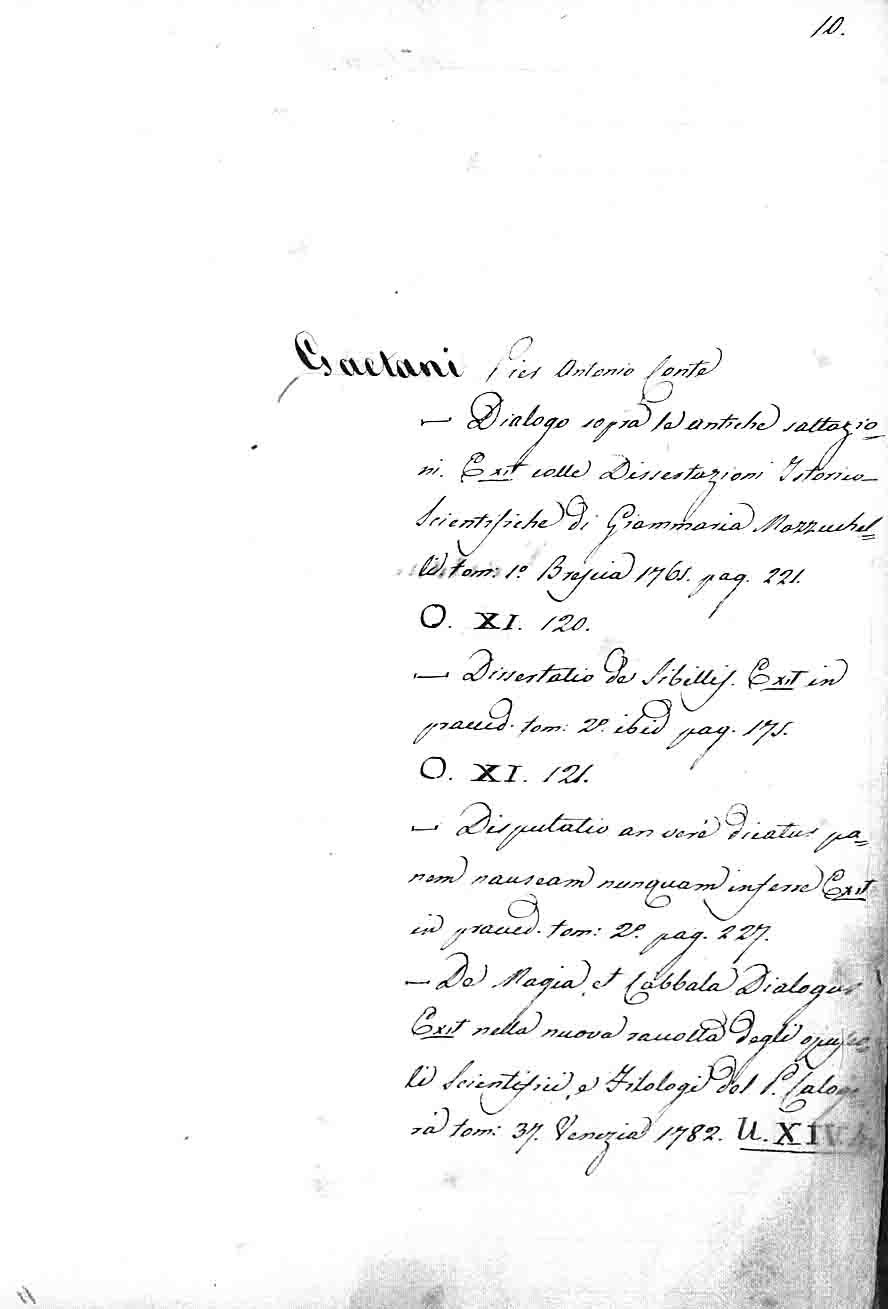 10.
Gaetani Pier Antonio Conte
— Dialogo sopra le antiche saltazio_
ni. Exit colle Dissertazioni Istorico_
Scientifiche di Giammaria Mazzuchel=
li tom: 1º Brescia 1765. pag. 221.
O. XI. 120.
— Dissertatio de Sibillis. Exit in
praeced. tom: 2º. ibid pag. 175.
O. XI. 121.
— Disputatio an verè dicatur pa=
nem nauseam nunquam inferre Exit
in praeced. tom: 2º. pag. 227.
— De Magia, et Cabbala Dialogus
Exit nella nuova raccolta degli opusco
li Scientifici, e Filologi del P. Caloge
rà tom: 37. Venezia 1782. U. XIV.